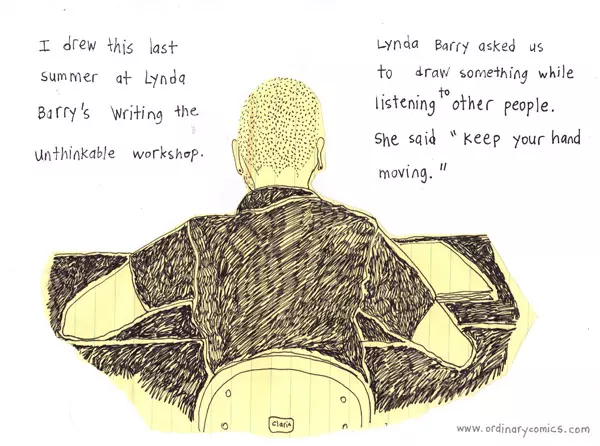 I drew this last
summer at Lynda
Barry's Writing the
unthinkable workshop.
Lynda Barry asked us
to draw something while
listening to other people.
She said "Keep your hand
moving."
www.ordinarycomics.com